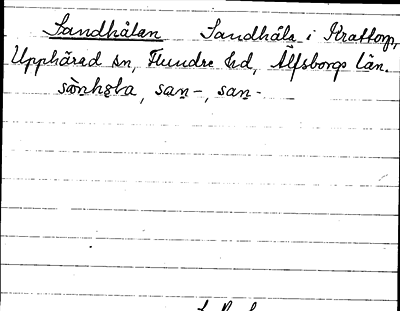 Sandhålan Sandhåla i Krattorp,
Upphärad sn, Flundre hd, Älfsborgs län.
sànhɷla, san-, san-